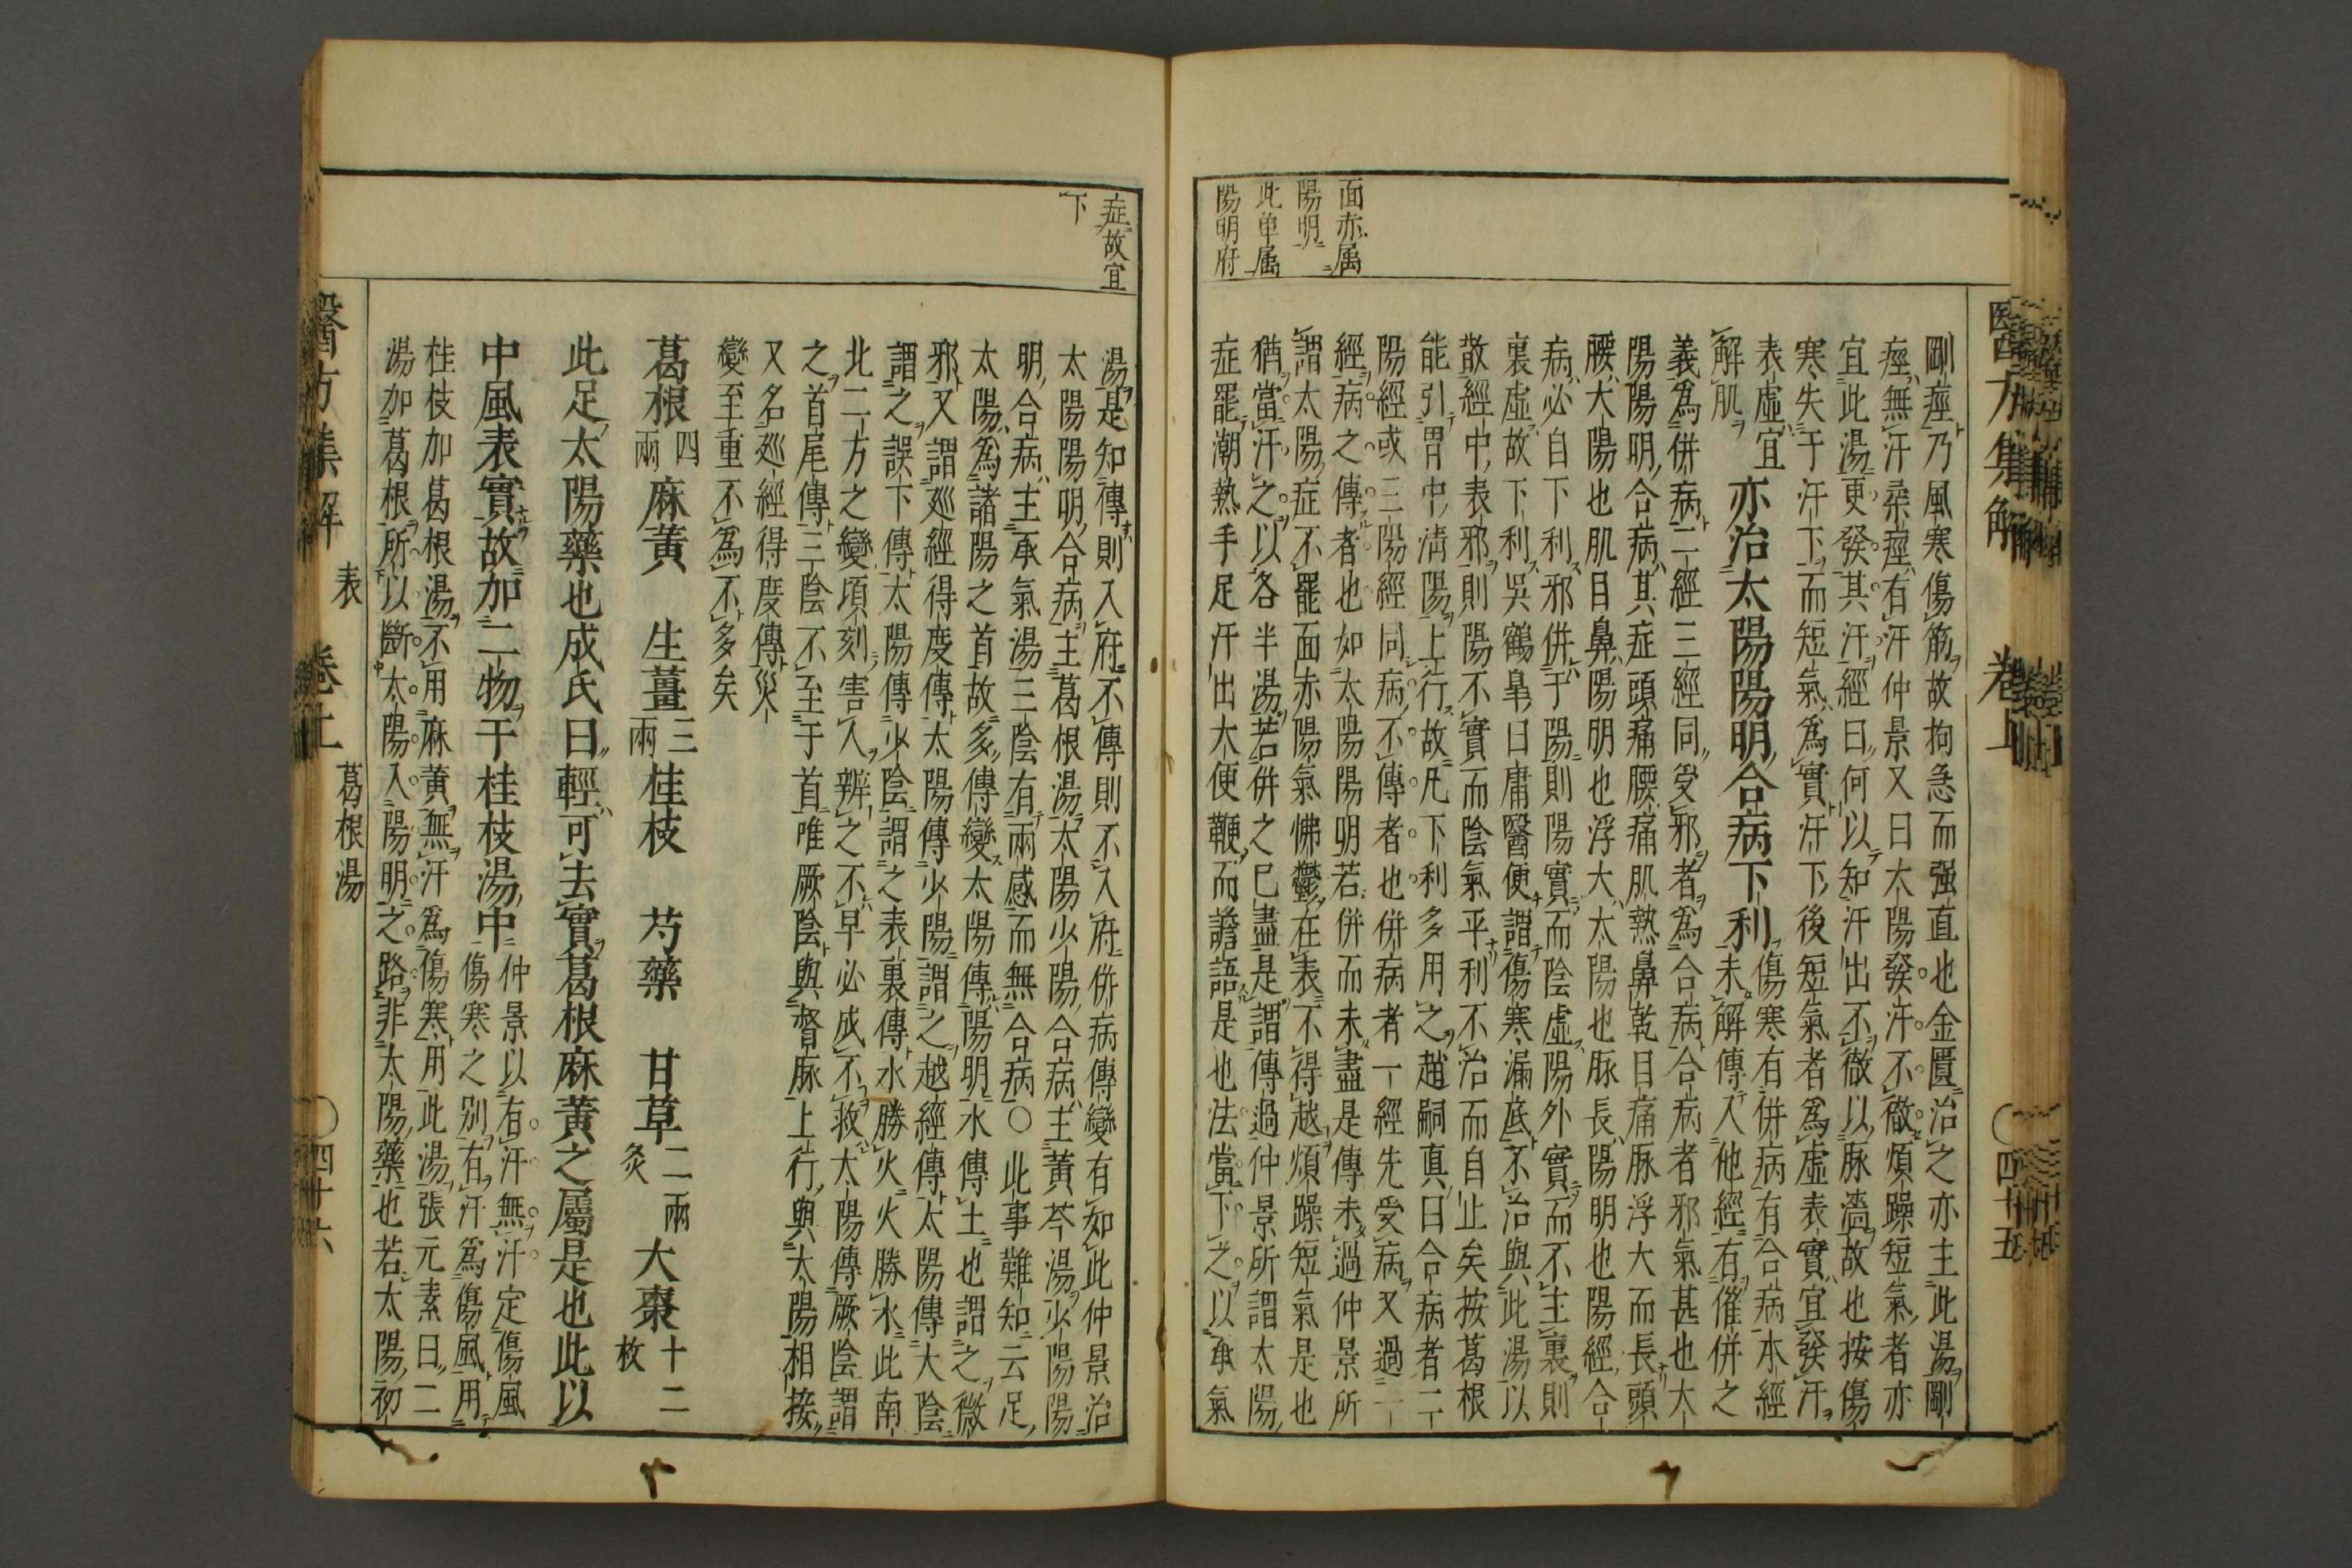 醫方集解　卷上　〇四十五
面赤属
陽明
此单属
陽明府
剛痙乃風寒傷筋故拘急而强直也金匱治之亦主此湯剛
痙無汗柔痙有汗仲景又曰太陽發汗不徹煩躁短氣者亦
宜此湯更發其汗經曰何以知汗出不徹以脉濇故也按傷
寒失于汗下而短氣爲實汗下後短氣者爲虛表實宜發汗
表虛宜
解肌
亦治太陽陽明合病下利
傷寒有併病有合病本經
未解傳入他經有催併之
義爲併病二經三經同受邪者爲合病合病者邪氣甚也太
陽陽明合病其症頭痛腰痛肌熱鼻乾目痛脉浮大而長頭
腰太陽也肌目鼻陽明也浮大太陽也脉長陽明也陽經合
病必自下利邪併于陽則陽實而陰虛陽外實而不主裏則
裏虛故下利吳鶴皐曰庸醫便謂傷寒漏底不治與此湯以
散經中表邪則陽不實而陰氣平利不治而自止矣按葛根
能引胃中淸陽上行故凡下利多用之趙嗣真曰合病者二
陽經或三陽經同病不傳者也併病者一經先受病又過一
經病之傳者也如太陽陽明若併而未盡是傳未過仲景所
謂太陽症不罷面赤陽氣怫鬱在表不得越煩躁短氣是也
猶當汗之以各半湯若併之已盡是謂傳過仲景所謂太陽
症罷潮熱手足汗出大便鞕而譫語是也法當下之以承氣
症故宜
下
湯是知傳則入府不傳則不入府併病傳變有如此仲景治
太陽陽明合病主葛根湯太陽少陽合病主黃芩湯少陽陽
明合病主承氣湯三陰有兩感而無合病〇此事難知云足
太陽爲諸陽之首故多傳變太陽傳陽明水傳土也謂之微
邪又謂廵經得度傳太陽傳少陽謂之越經傳太陽傳太陰
謂之誤下傳太陽傳少陰謂之表裏傳水勝火火勝水此南
北二方之變頃刻害人辨之不早必成不救太陽傳厥陰謂
之首尾傳三陰不至于首唯厥陰與督脉上行與太陽相接
又名廵經得度傳災
變至重不爲不多矣
葛根四兩　麻黃　生薑三兩　桂枝　芍藥　甘草二兩炙　大棗十二枚
此足太陽藥也成氏曰輕可去實葛根麻黃之屬是也此以
中風表實故加二物于桂枝湯中
仲景以有汗無汗定傷風
傷寒之別有汗爲傷風用
桂枝加葛根湯不用麻黃無汗爲傷寒用此湯張元素曰二
湯加葛根所以斷太陽入陽明之路非太陽藥也若太陽初
醫方集解　表　卷上　葛根湯　〇四十六